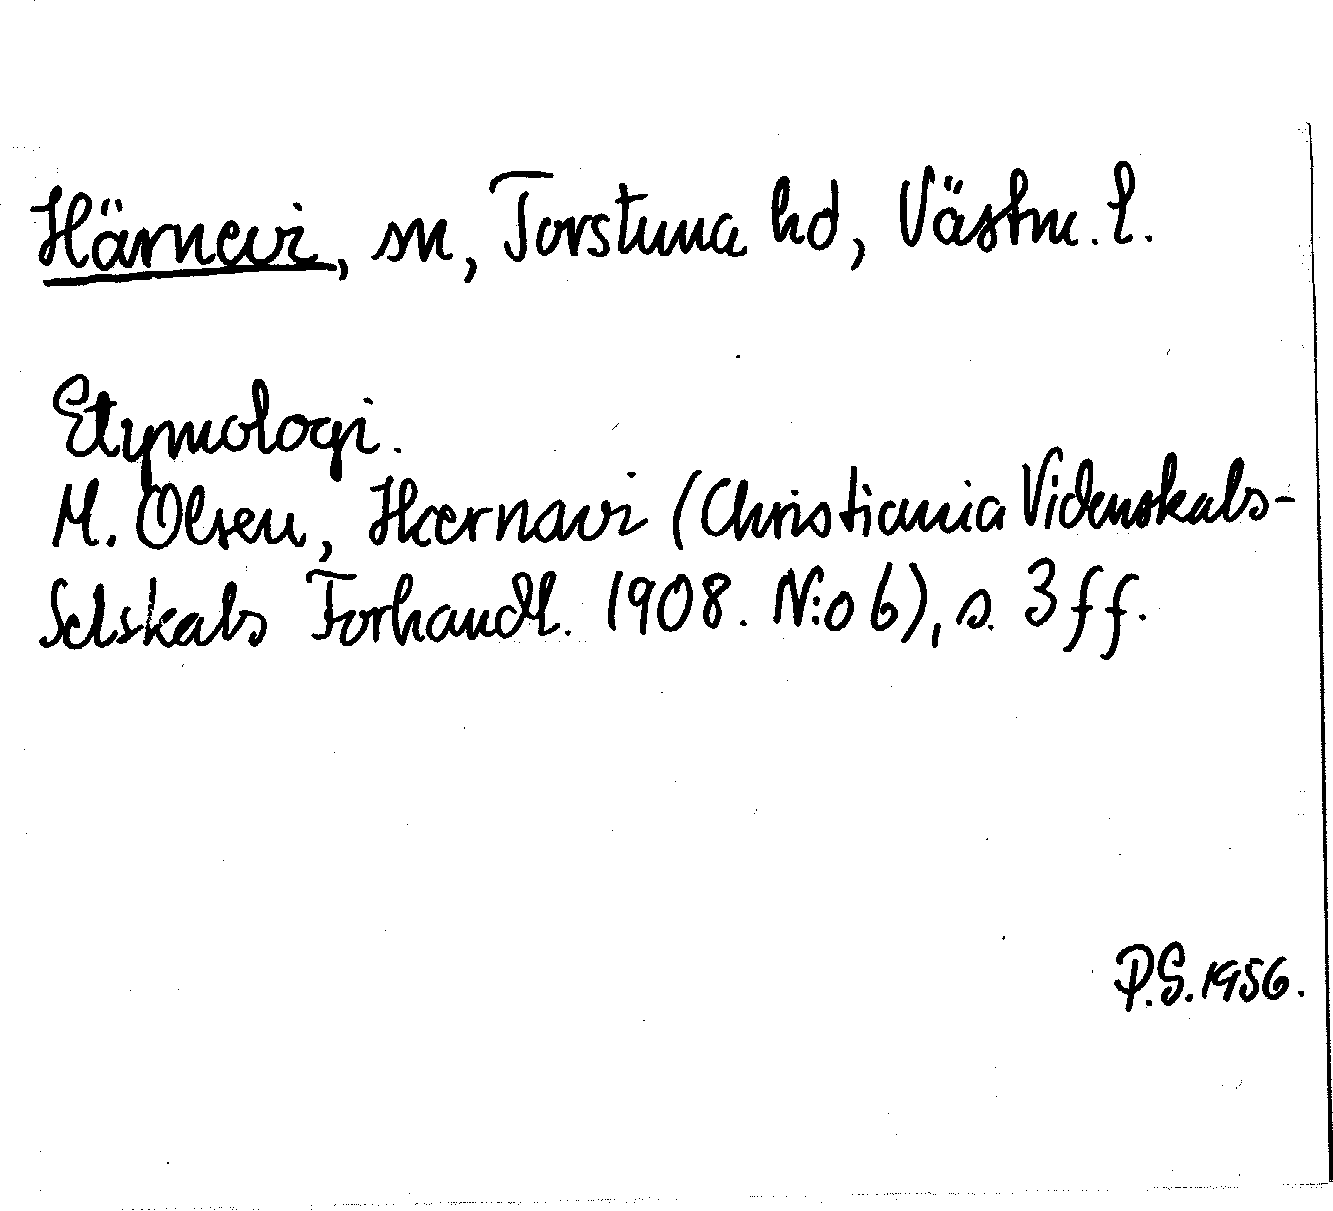 Härnevi, sn, Torstuna hd, Västm. l.
Etymologi.
M. Olsen, Hærnavi (Christiania Videnskabs-
Selskabs Forhandl. 1908. N:o 6), s. 3 ff.
P.S. 1956.